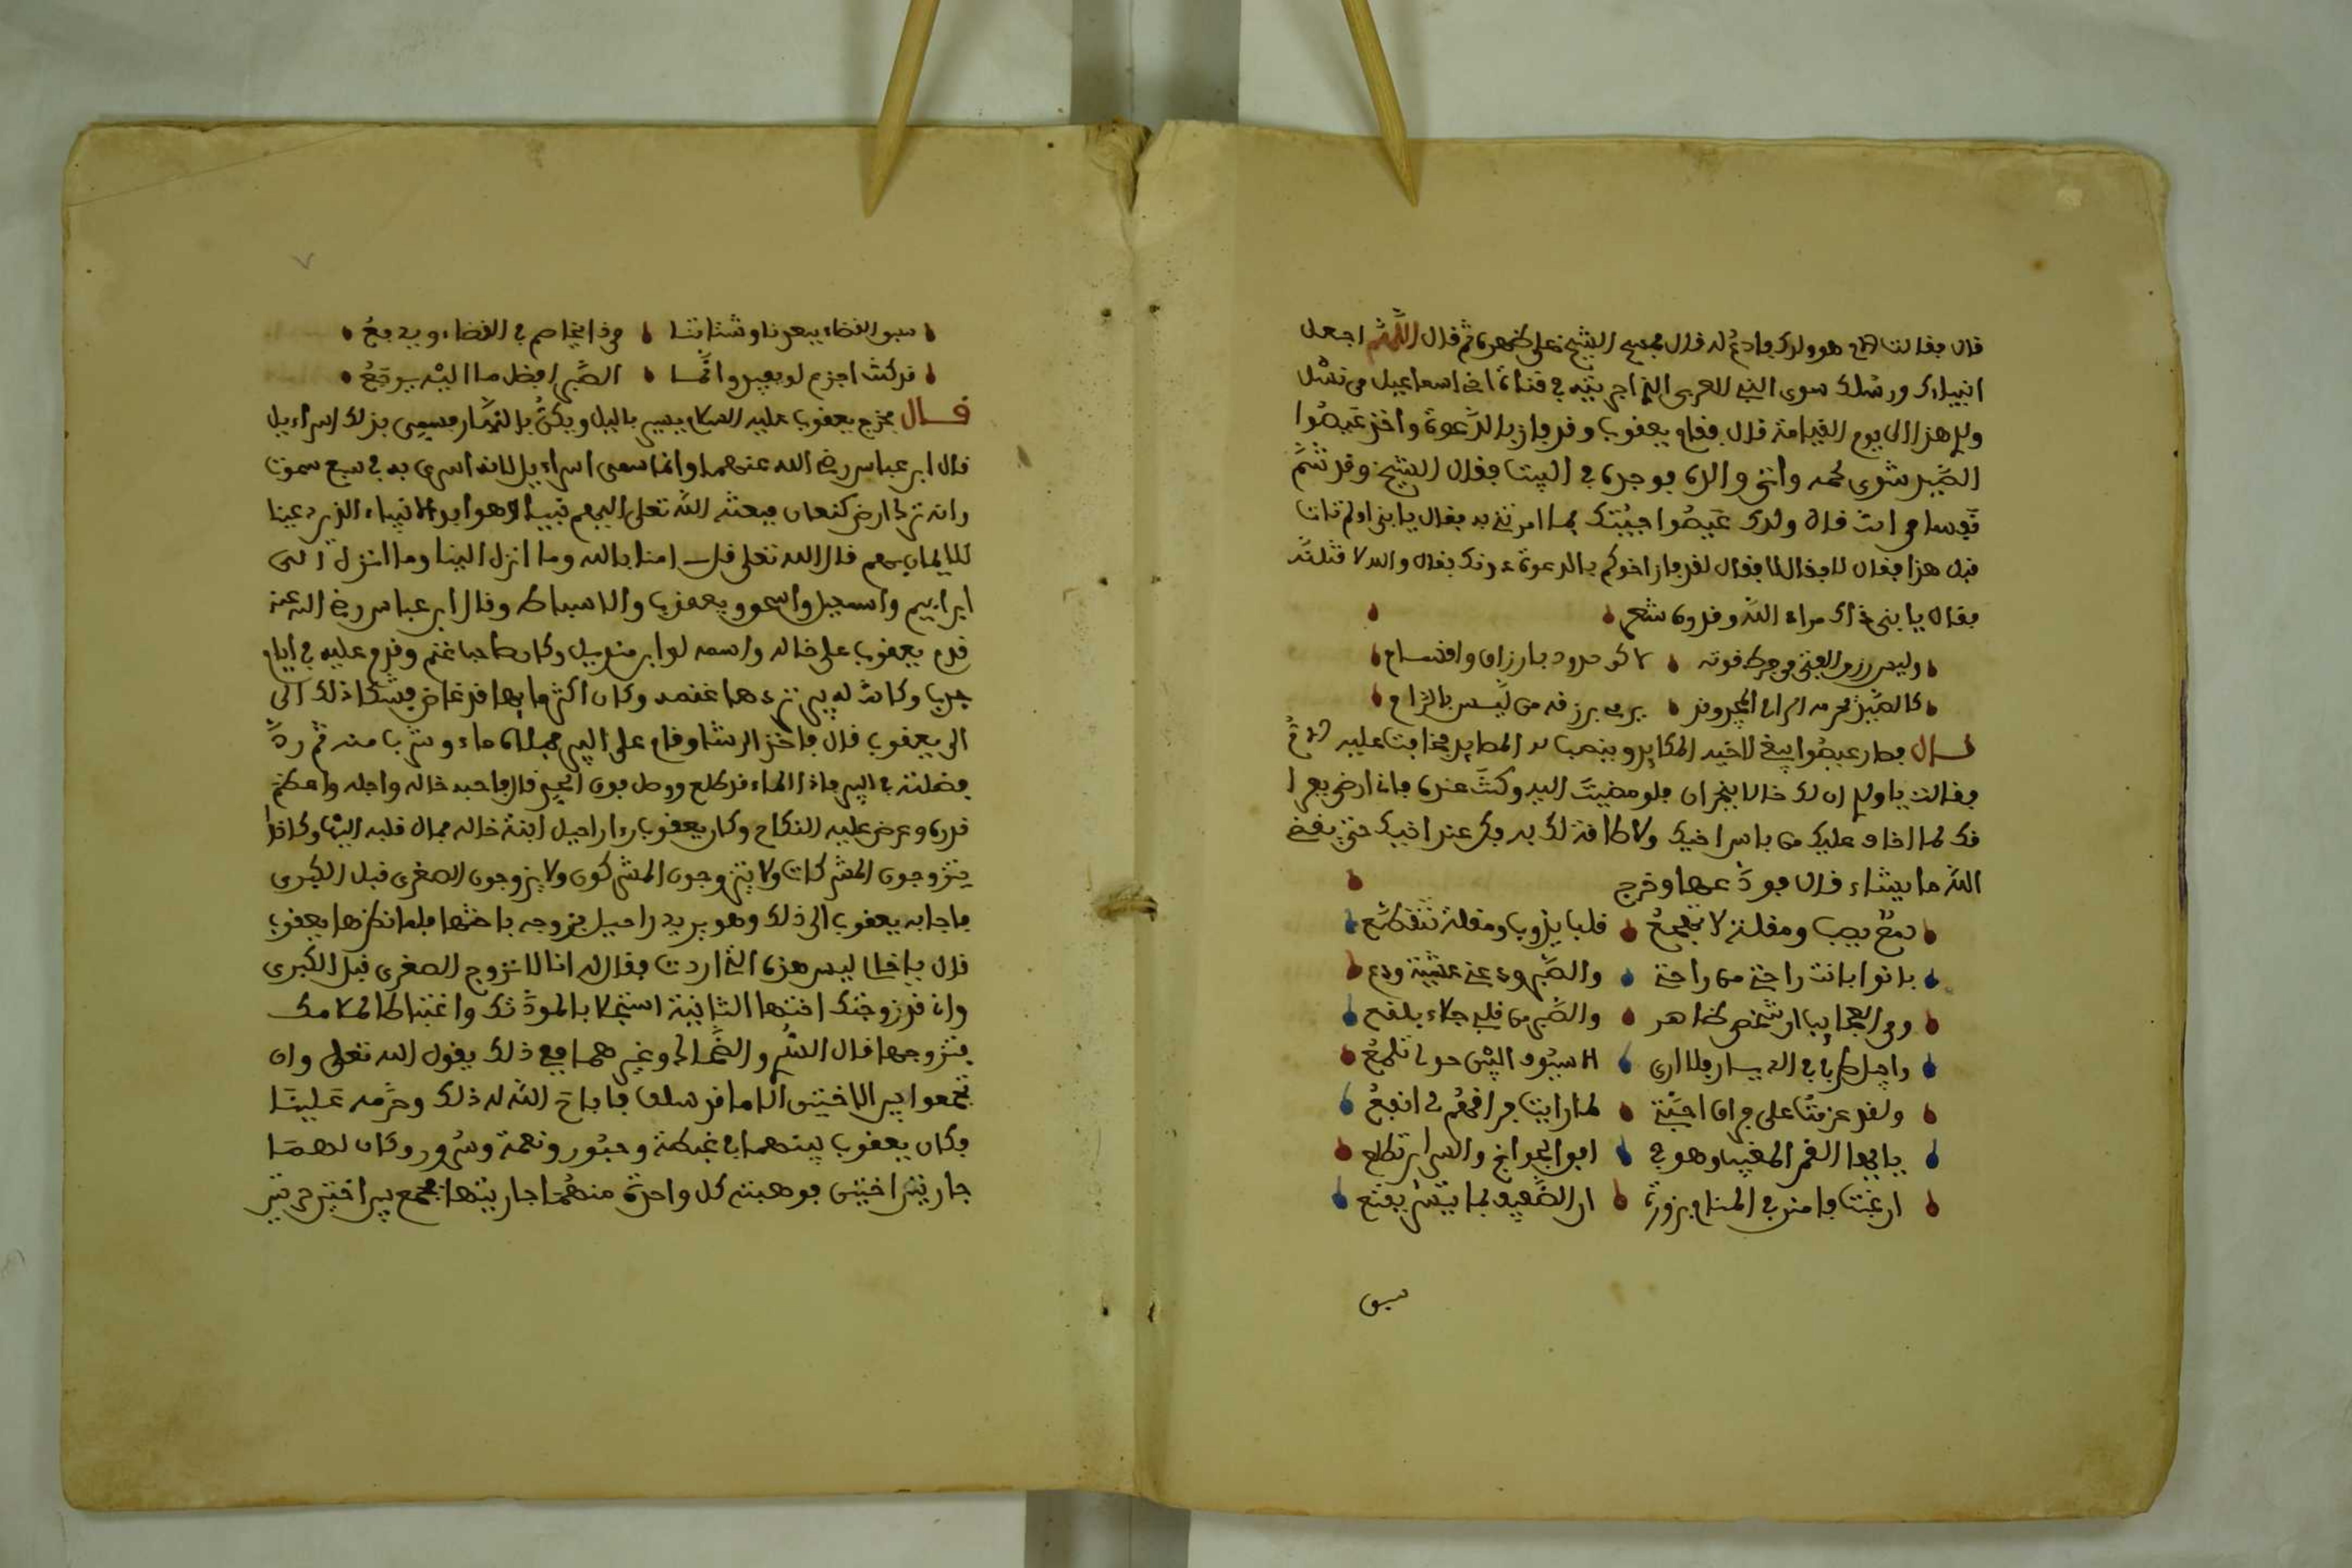 قال فقالت الام هو ولدك فادع له قال فمسح الشيخ على ظهره ثم قال اللهم اجعل
انبياءك ورسلك سوى النبي العربي الذي اجريته في قناة اخي اسماعيل من نسل
ولدي هذا الى يوم القيامة قال فقام يعقوب وقد فاز بالدعوة واخذ عيصوا
الصيد شوى لحمه واتى والده فوجده في البيت فقال الشيخ وقد شم
من انت قال ولدك عيصوا جيتك بما امرتني به فقال يا بني اولم تات
قبل هذا فقال لا فقال لقد فاز اخوكم بالدعوة دونك فقال والله لاقتلنه
فقال يا بني ذاك مراد الله وقدره شعر
وليس رزق الفتى من حيلته لاكن حدود بارزاق واقسام
كالصيد يحرمه الرامي المجيد وقد يرمي برزقه من ليس بالرام
قال فصار عيصوا يبغي لاخيه المكايد وينصب له المصايد فخافت عليه الام
فقالت يا ولدي ان لك خالا بنجران فلو مضيت اليه وكنت عنده فانا ارضى بعدا
فك لما اخاف عليك من باس اخيك ولا طاقة لك به فكن عند اخيك حتى يقضي
الله ما يشاء قال فودعها وخرج
دمع يصب ومقلة لا تهجع قلب يذوب ومقلة تتقطع
بانوا بانت راحتي من راحتي والصبر ودعني عشية ودع
ومن العجايب ان شخصي ظاهر والصبر من قلبي جلاء بلقع
واجيل طرفي في الديار فلا ارى الا سيوف البين حولي تلمع
ولقد عزمت على فراق احبتي لما رايت فراقهم لي انفع
يا ايها القمر المغيب وهو في افق الجوانح والسراير تطلع
ان غبت فامنن في المنام بزورة ان الضعيف بما تيسر يقنع
سبق
سبق القضاء ببعدنا وشتاتنا من ذا يخاصم في القضاء ويدفع
قد كنت اجزع لو يفيد وانما الصبر افضل ما اليه يرجع
قال فخرج يعقوب عليه السلام يسير بالليل ويكن بالنهار فسمي بذلك اسراءيل
قال ابن عباس رضي الله عنهما وانما سمي اسراءيل لانه اسري به في سبع سموت
وانه نزل ارض كنعان فبعثه الله تعلى اليهم نبيا وهو ابو الانبياء الذين دعينا
للايمان بهم قال الله تعلى قل امنا بالله وما انزل الينا وما انزل الى
ابراهيم واسمعيل واسحق ويعقوب والاسباط وقال ابن عباس رضي الله عنه
قدم يعقوب على خاله واسمه لوا بن وكان صاحب غنم وقدم عليه في ايام
جدب وكانت له بير تردها غنمه وكان اكثر مايها قد غاض فشكا ذلك الى
الى يعقوب قال فاخذ الرشا وقام على البير فملا ماء وشربا منه ثم رد
فضلته في البير فاذا الماء قد طلع ووصل فوق البير قال فاحبه خاله واجله واعظم
قدره وعرض عليه النكاح وكان يعقوب راى راحيل ابنة خاله فمال قلبه اليها وكانوا
يتزوجون المشركات ولا يتزوجون المشركون ولا يزوجون الصغرى قبل الكبرى
فاجابه يعقوب الى ذلك وهو يريد راحيل فزوجه باختها فلما نظرها يعقوب
قال يا خال ليس هذه التي اردت فقال له انا لا نزوج الصغرى قبل الكبرى
وانا قد زوجتك اختها الثانية استجلابا لمودتك واغتباطا لمكانك
فتزوجها قال السدي والضحاك وغيرهما فمع ذلك يقول الله تعلى وان
تجمعوا بين الاختين الا ما قد سلف فاباح الله له ذلك وحرمه علينا
فكان يعقوب بينهما في غبطة وحبور ونعمة وسرور وكان لهما
جاريتين اختين فوهبته كل واحدة منهما جاريتها فجمع بين اختين حرتين